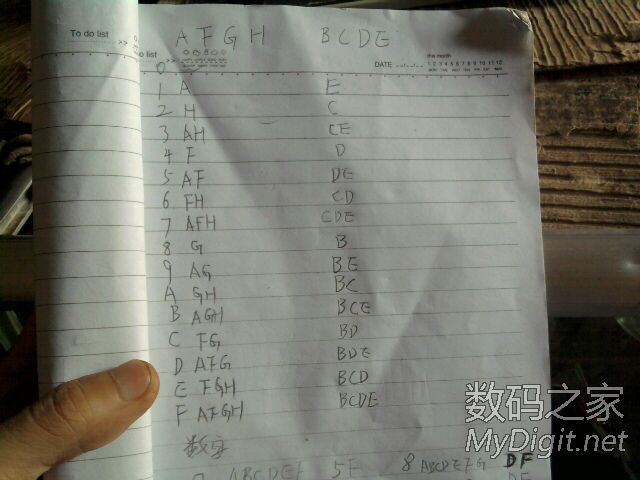 To do list
A F G H B C D E
do list
DATE
this month
1 2 3 4 5 6 7 8 9 10 11 12
MON. TUE. WED. THU. FRI. SAT. SUN.
0
1 A E
2 H C
3 AH CE
4 F D
5 AF DE
6 FH CD
7 AFH CDE
8 G B
9 AG BE
A GH BC
B AGH BCE
C FG BD
D AFG BDE
E FGH BCD
F AFGH BCDE
数字
ABCDEF 5F 8 ABCDEFG DF
数码之家
MyDigit.net